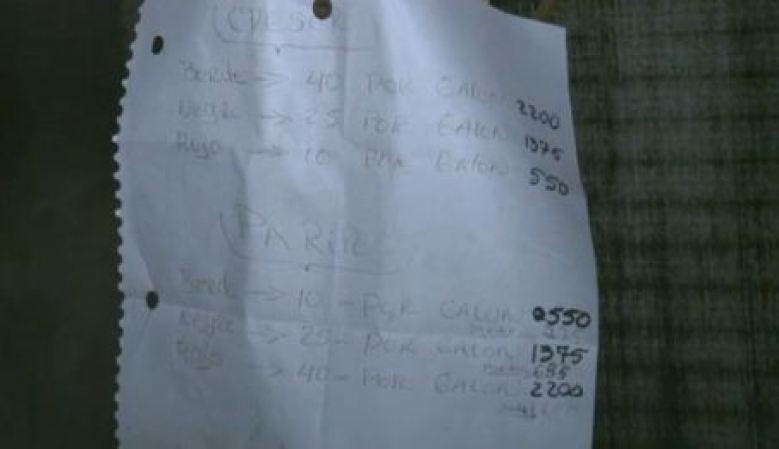 CRESER
Berde → 40 POR GALON 2200
Negro → 25 POR GALON 1375
Rojo → 10 POR GALON 550
PARIR
Berde → 10 - POR GALON 550
Negro → 25 - POR GALON 1375
Rojo → 40 - POR GALON 2200